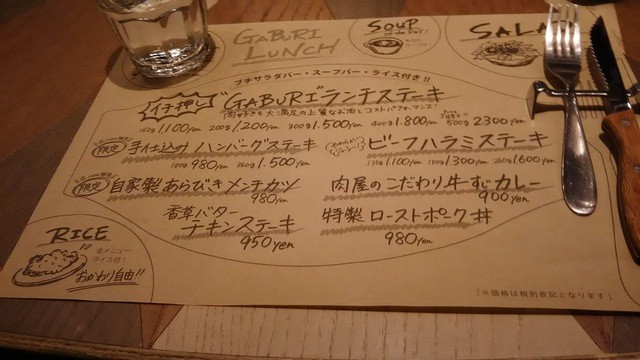 GABURI LUNCH
SOUP
SALA
プチサラダバー・スープバー・ライス付き!!
イチ押し GABURIランチステーキ
肉好きも大満足の上質なお肉とコストパフォーマンス!
150g 1.100yen 200g 1.200yen 300g 1.500yen 400g 1.800yen 500g 2.300yen
限定 手仕込みハンバーグステーキ
180g 980yen 360g 1.500yen
ビーフハラミステーキ
1.100yen 1.300yen 200g 1.600yen
限定 自家製あらびきメンチカツ
980yen
肉屋のこだわり牛すじカレー
900yen
香草バター
チキンステーキ
950yen
特製ローストポーク丼
980yen
RICE
全メニュー
ライス付!
おかわり自由!!
[※価格は税別表記となります]